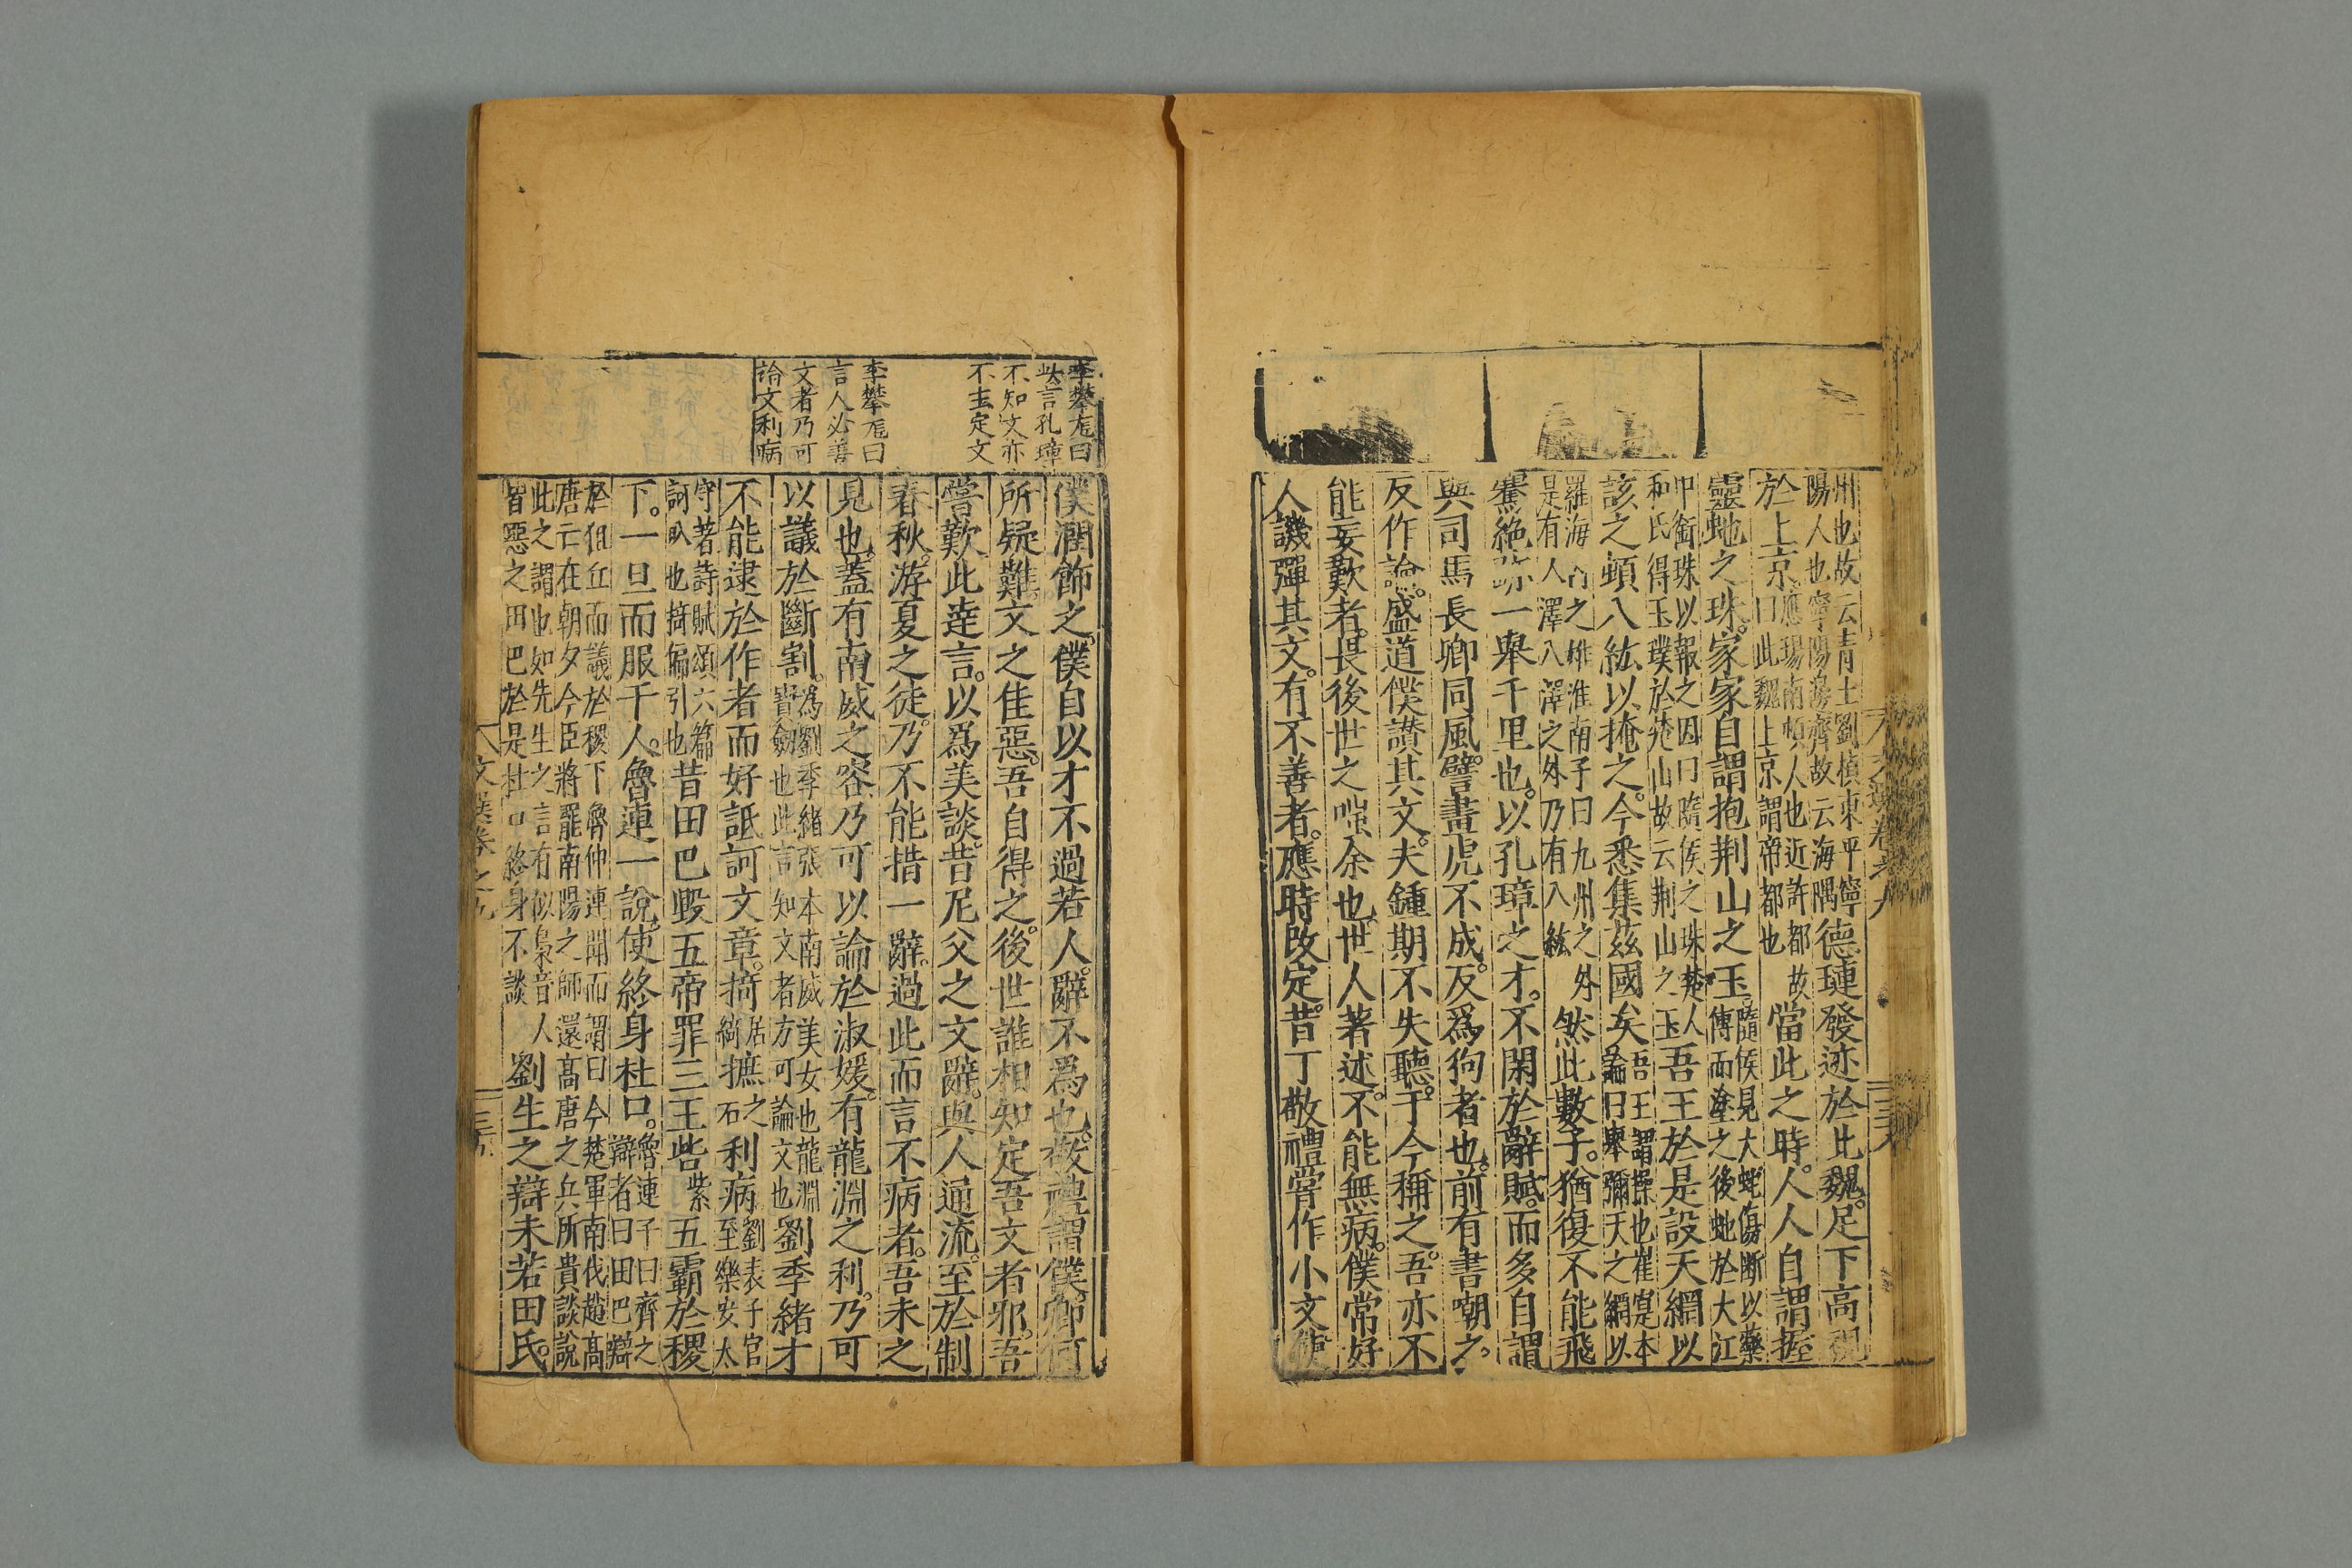 州也故云青土劉楨東平寧
陽人也寧陽邊齊故云海隅
德璉發迹於此魏。足下高視
於上京。
應瑒南頓人也近許都故
曰此魏上京謂帝都也
當此之時。人人自謂握
靈虵之珠。家家自謂抱荆山之玉。
隨侯見大蛇傷断以藥
傅而塗之後虵於大江
中銜珠以報之因曰隨侯之珠楚人
和氏得玉璞於楚山故云荆山之玉
吾王於是設天網以
該之頓八紘以掩之。今悉集茲國矣
吾王謂操也崔寔本
論曰舉彌天之網以
羅海内之雄淮南子曰九州之外
是有八澤八澤之外乃有八紘
然此數子。猶復不能飛
騫絶迹一舉千里也。以孔璋之才。不閑於辭賦。而多自謂
與司馬長卿同風。譬畫虎不成。反爲狗者也。前有書嘲之。
反作論。盛道僕讃其文。夫鍾期不失聽。于今稱之。吾亦不
能妄歎者。畏後世之嗤余也。世人著述。不能無病。僕常好
人譏彈其文。有不善者。應時改定。昔丁敬禮嘗作小文使
李攀龍曰
此言孔璋
不知文亦
不主定文
李攀龍曰
言人必善
文者乃可
論文利病
僕潤飾之。僕自以才不過若人。辭不爲也。敬禮謂僕。卿何
所疑難。文之佳惡。吾自得之。後世誰相知定吾文者邪。吾
嘗歎此達言。以爲美談。昔尼父之文辭。與人通流。至於制
春秋。游夏之徒。乃不能措一辭。過此而言不病者。吾未之
見也。蓋有南威之容。乃可以論於淑媛。有龍淵之利。乃可
以議於斷割。
為劉季緒張本南威美女也龍淵
寳劔也此言知文者方可論文也
劉季緒才
不能逮於作者而好詆訶文章。掎
居
綺
摭
之
石
利病
劉表子官
至樂安太
守著詩賦頌六篇
訶㕥也掎偏引也
昔田巴毀五帝罪三王呰
紫
五霸於稷
下。一旦而服千人。魯連一說。使終身杜口。
魯連子曰齊之
辯者曰田巴辯
於狙丘而議於稷下魯仲連聞而謂曰今楚軍南伐趙高
唐云在朝夕今臣將罷南陽之師還高唐之兵所貴談說
此之謂也如先生之言有似梟音人
皆惡之田巴於是杜口終身不談
劉生之辯未若田氏。
文選卷之九